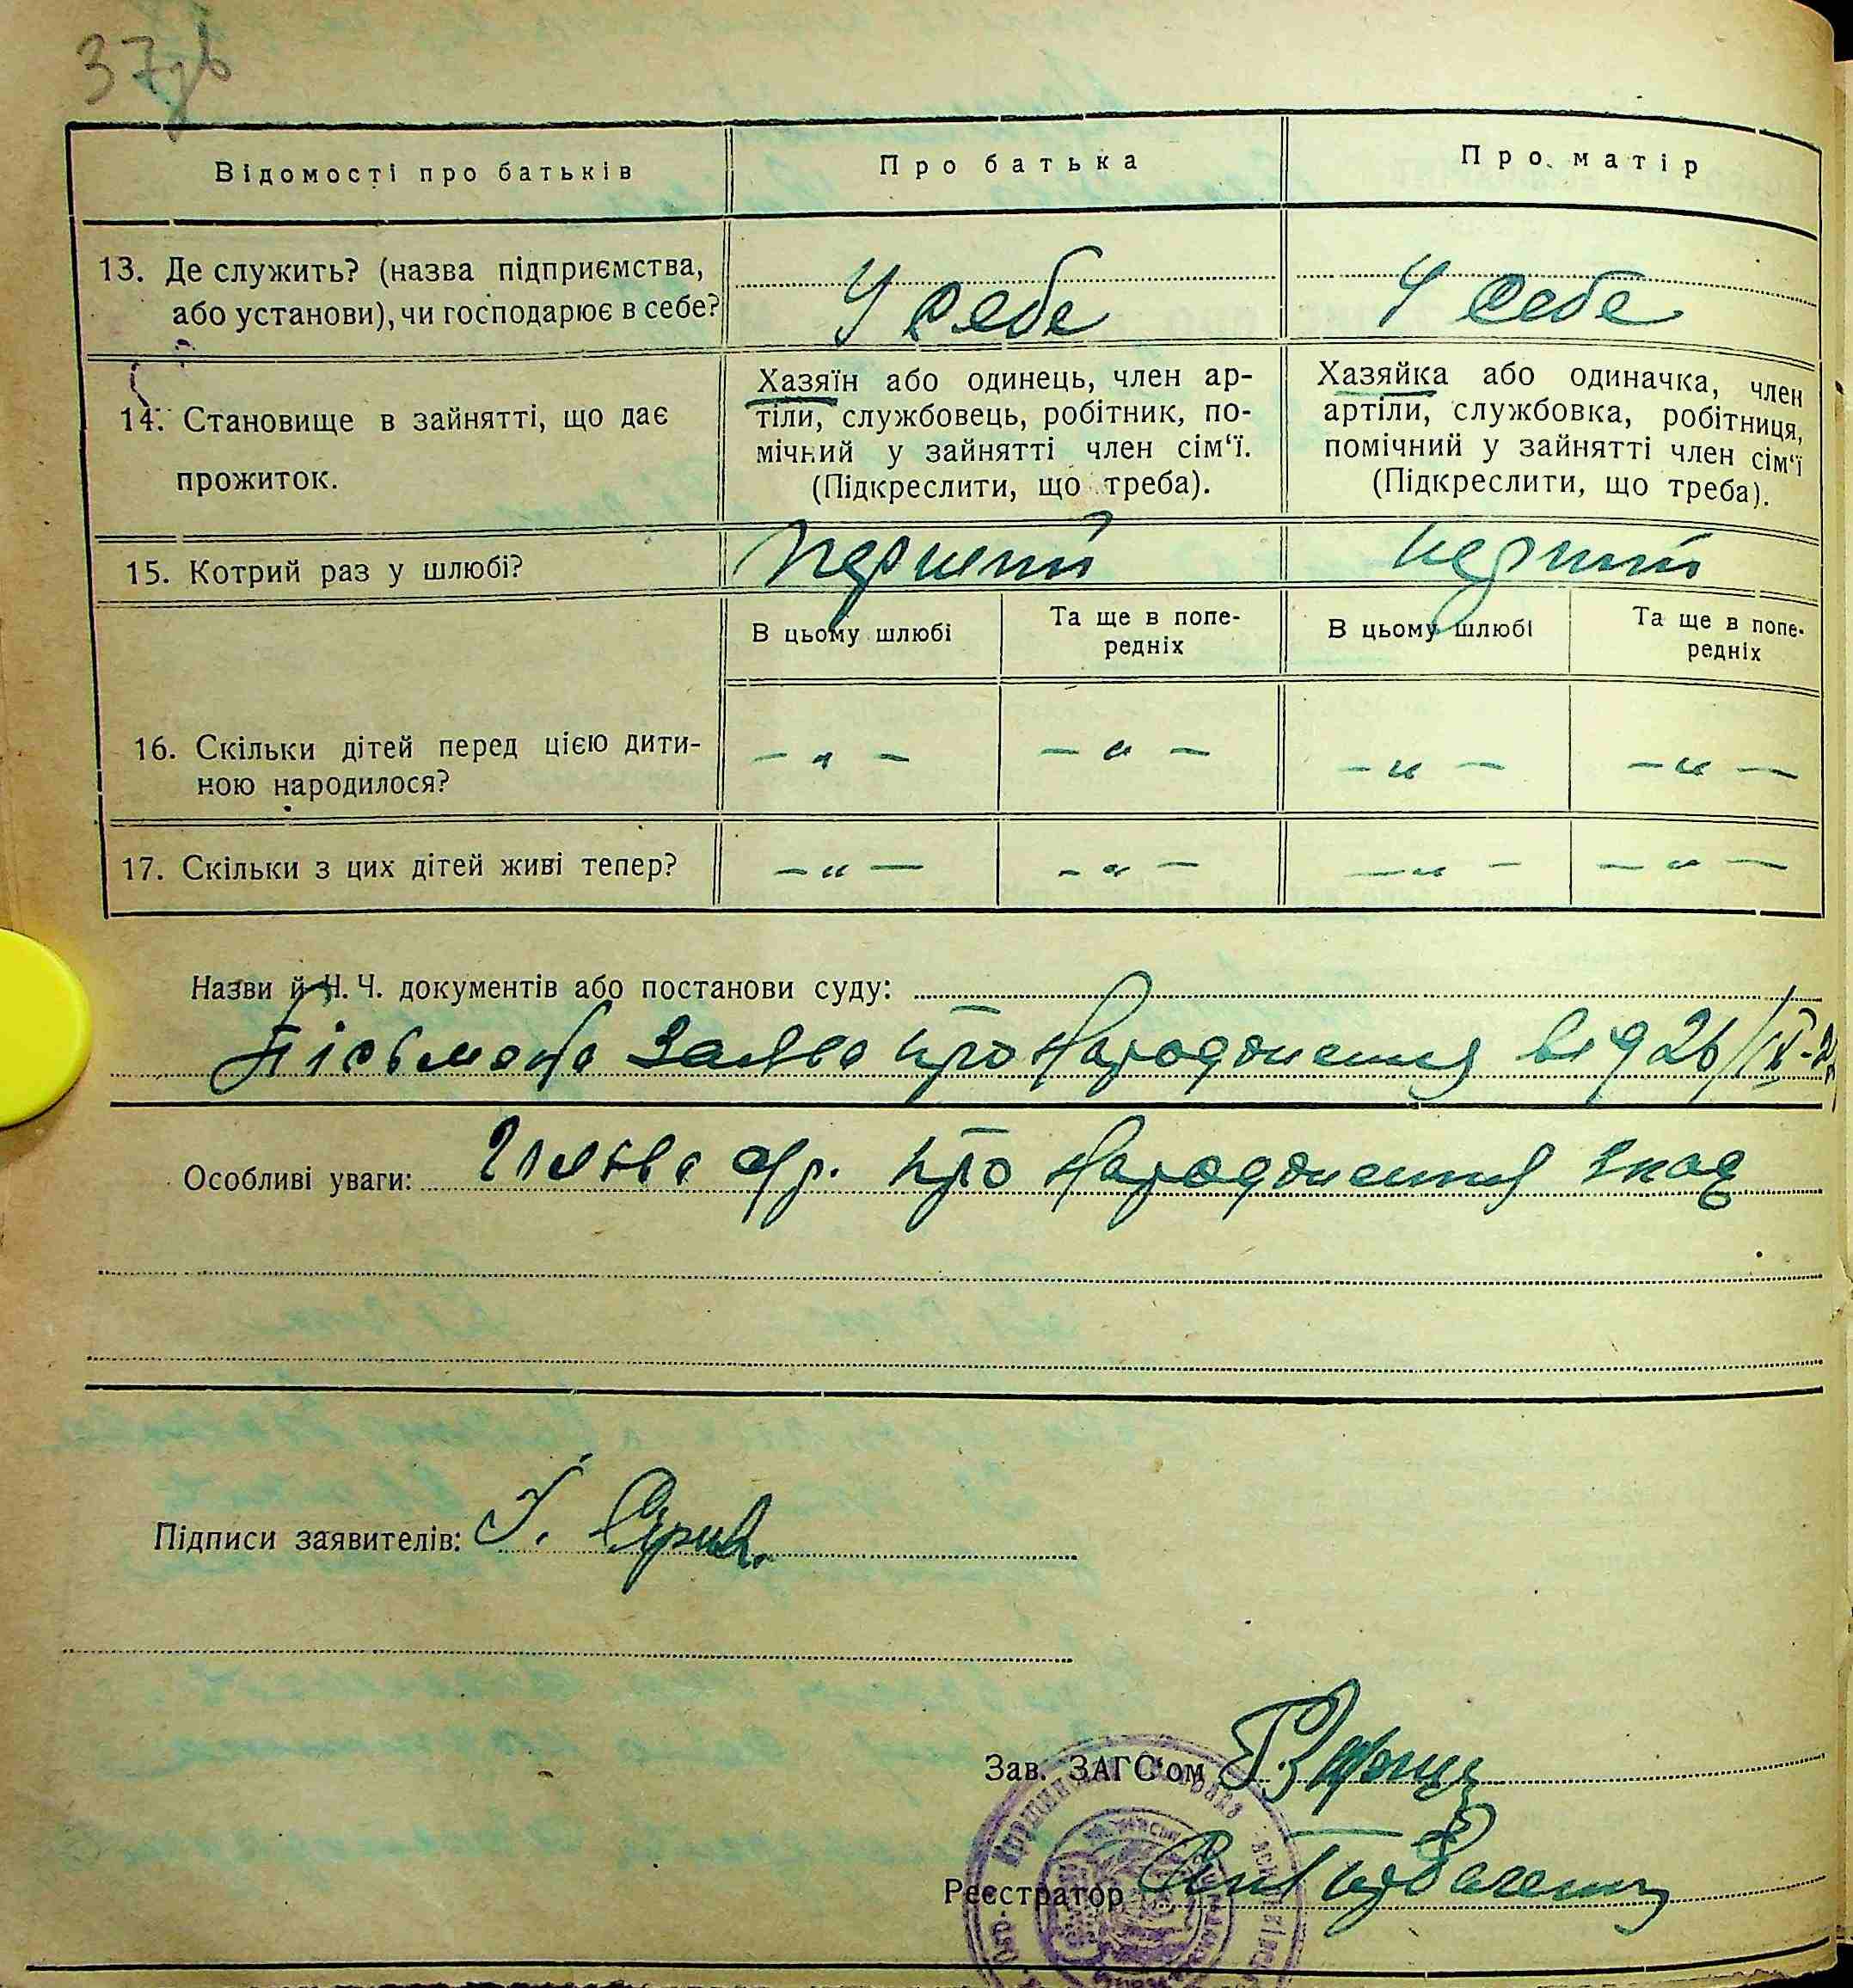 37зв
Відомості про батьків
Про батька
Про матір
13. Де служить? (назва підприємства,
або установи), чи господарює в себе?
У себе
У себе
14. Становище в зайнятті, що дає
прожиток.
Хазяїн або одинець, член ар-
тіли, службовець, робітник, по-
мічний у зайнятті член сім‘ї.
(Підкреслити, що треба).
Хазяйка або одиначка, член
артіли, службовка, робітниця,
помічний у зайнятті член сім‘ї
(Підкреслити, що треба).
15. Котрий раз у шлюбі?
перший
перший
В цьому шлюбі
Та ще в попе-
редніх
В цьому шлюбі
Та ще в попе-
редніх
16. Скільки дітей перед цією дити-
ною народилося?
– „ –
– „ –
– „ –
– „ –
17. Скільки з цих дітей живі тепер?
– „ –
– „ –
– „ –
– „ –
Назви й Н. Ч. документів або постанови суду:
Пісьмова заява про народження від 26/IX-
Особливі уваги: про народження
Підписи заявителів:
Зав. ЗАГС‘ом
Реєстратор